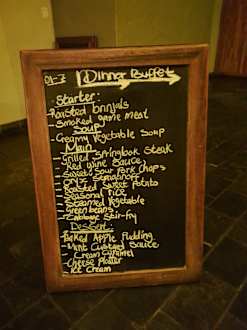 Dinner Buffet
Starter:
- Roasted brinjals
- Smoked game meat
Soup
- Creamy Vegetable Soup
Main
- Grilled Springbok Steak
- Red Wine Sauce
- Sweet & Sour Pork Chops
- Stroganoff
- Roasted Sweet Potato
- Seasonal rice
- Steamed Vegetable
- Green beans
- Cabbage Stir-fry
Dessert:
- Baked Apple Pudding
- Mint Custard Sauce
- Cream Caramel
- Cheese Platter
- Ice Cream